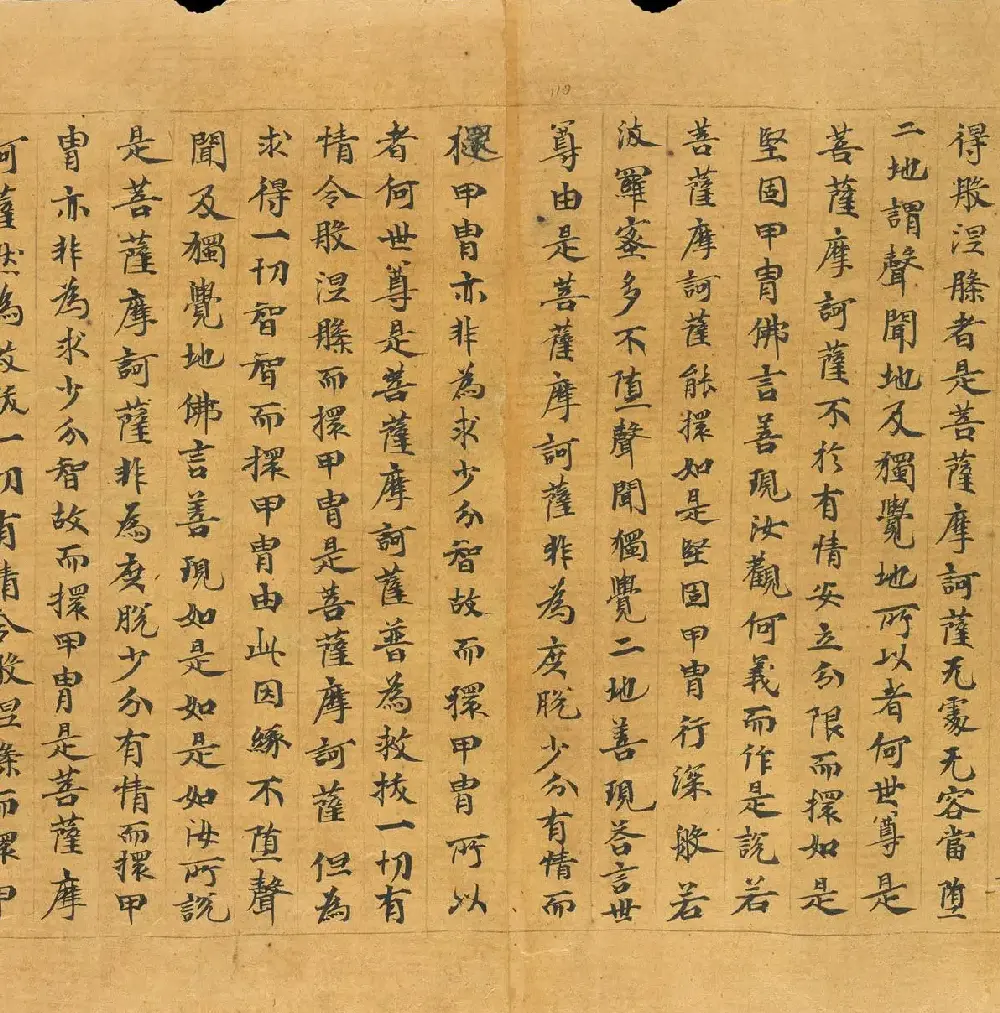 得般涅槃者是菩薩摩訶薩无處无容當堕
二地謂聲聞地及獨覺地所以者何世尊是
菩薩摩訶薩不於有情安立分限而擐如是
堅固甲冑佛言善現汝觀何義而作是說若
菩薩摩訶薩能擐如是堅固甲冑行深般若
波羅蜜多不堕聲聞獨覺二地善現荅言世
尊由是菩薩摩訶薩非為度脫少分有情而
擐甲冑亦非為求少分智故而擐甲冑所以
者何世尊是菩薩摩訶薩普為救拔一切有
情令般涅槃而擐甲冑是菩薩摩訶薩但為
求得一切智智而擐甲冑由此因緣不堕聲
聞及獨覺地佛言善現如是如是如汝所說
是菩薩摩訶薩非為度脫少分有情而擐甲
冑亦非為求少分智故而擐甲冑是菩薩摩
訶薩然為救拔一切有情令般涅槃而擐甲